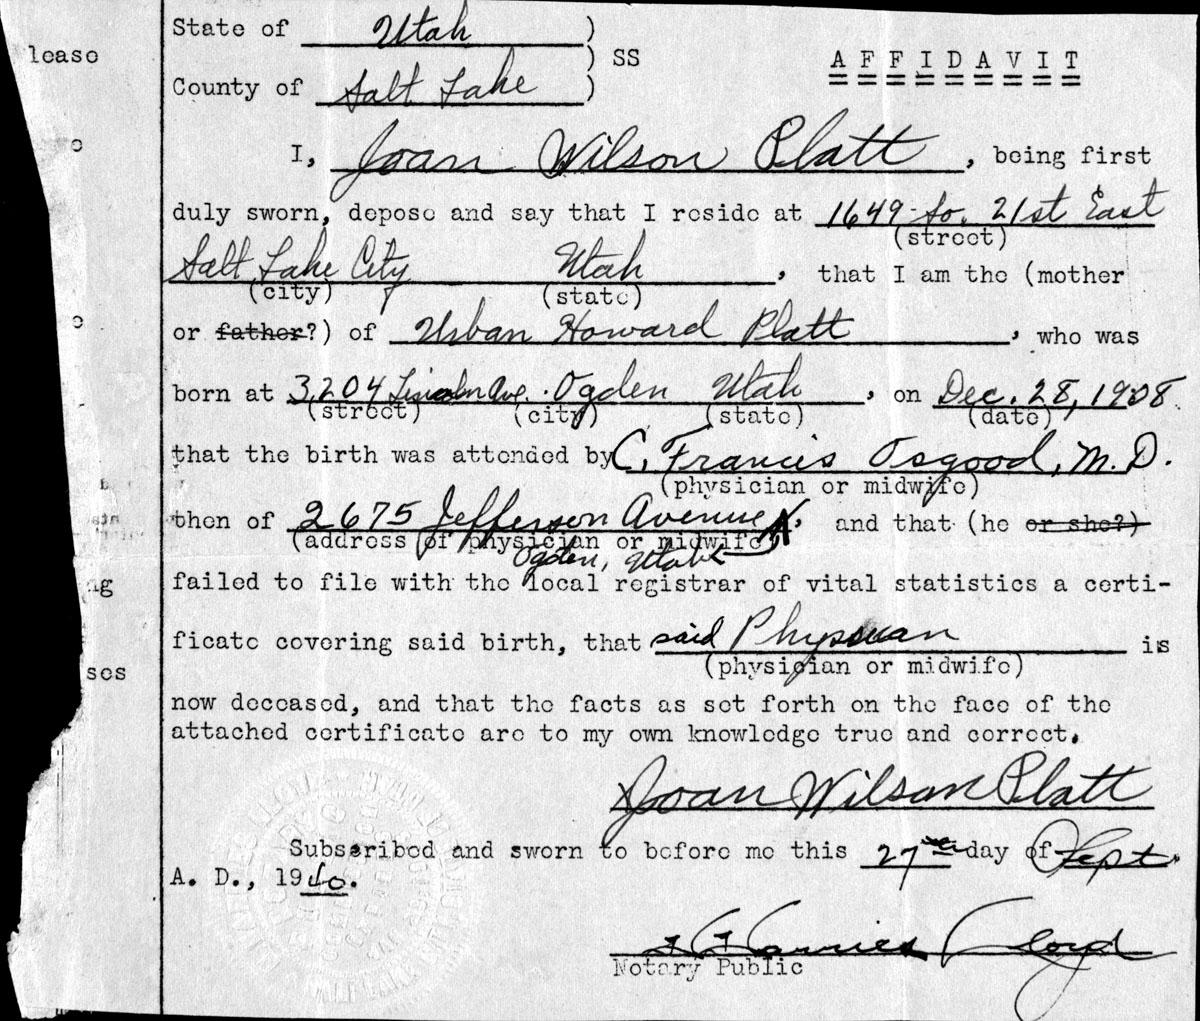 State of Utah )
) SS
lease
A F F I D A V I T
County of Salt Lake )
I, Joan Wilson Platt, being first
duly sworn, depose and say that I reside at 1649 So. 21st East
(street)
Salt Lake City Utah, that I am the (mother
(city) (state)
or father?) of Urban Howard Platt, who was
born at 3204 Lincoln Ave. Ogden Utah, on Dec. 28, 1908
(street) (city) (state) (date)
that the birth was attended by C. Francis Osgood, M.D.
(physician or midwife)
then of 2675 Jefferson Avenue, and that (he or she?)
(address of physician or midwife)
Ogden, Utah
failed to file with the local registrar of vital statistics a certi-
ng
ficate covering said birth, that said Physician is
(physician or midwife)
ses
now deceased, and that the facts as set forth on the face of the
attached certificate are to my own knowledge true and correct.
Joan Wilson Platt
Subscribed and sworn to before me this 27th day of Sept.
A. D., 1940.
Lloyd
Notary Public